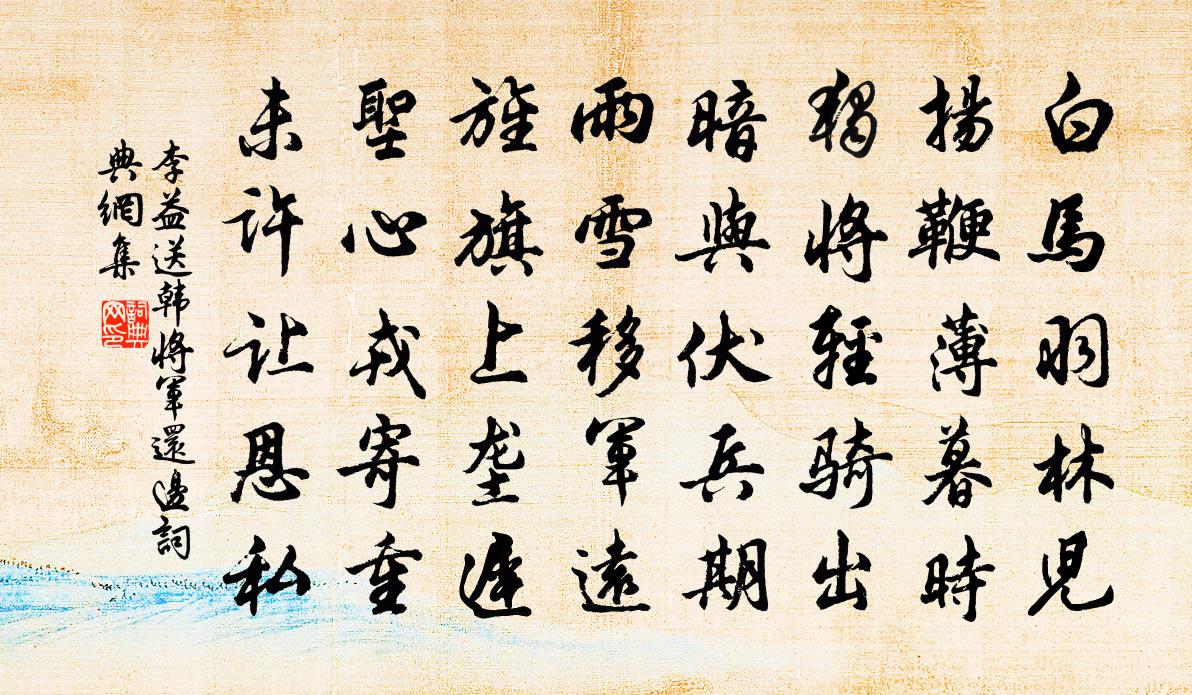 白馬羽林兒
揚鞭薄暮時
獨將輕騎出
暗與伏兵期
雨雪移軍遠
旌旗上垄遲
聖心戎寄重
未許让恩私
李益送韩將軍還邊詞
典網集
詞典网印